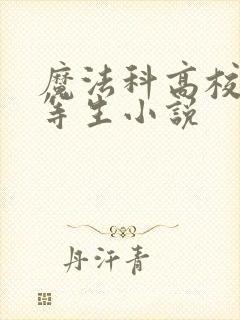 魔法科高校
等生小說
丹汗青